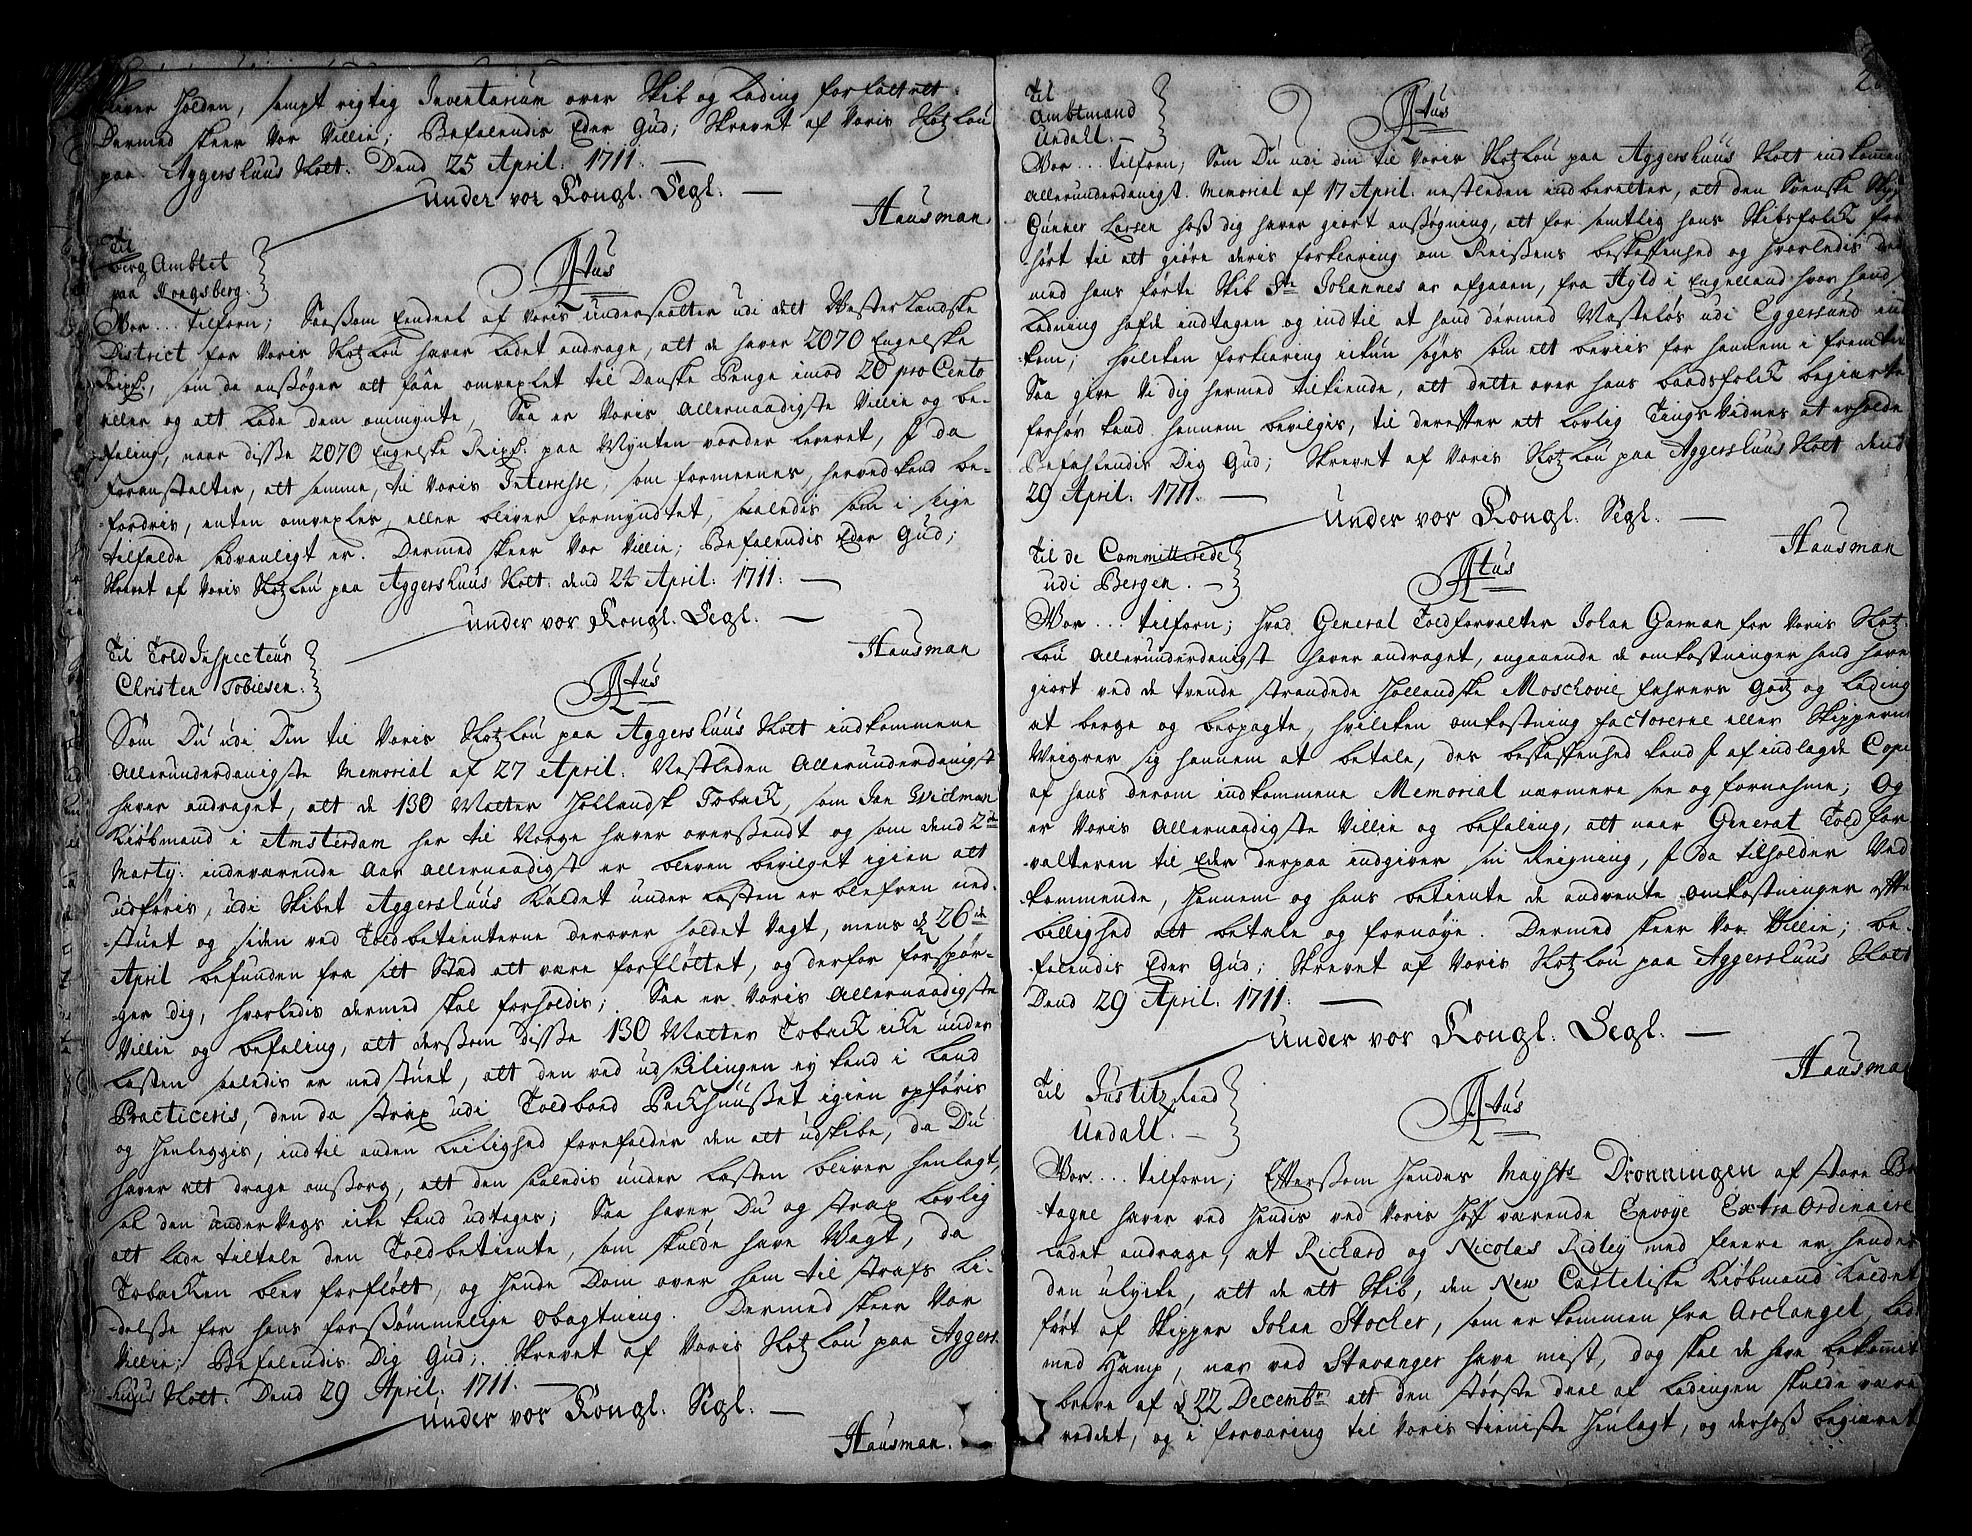 bliver holden, sampt rigtig Inventarium over Skib og Lading forfattet.
Dermed skeer Vor Villie; Befalendis Eder Gud; Skrevet af Voris Slotz Lou
paa Aggershuus Slott. Dend 25 April: 1711. —
Under vor Kongl. Segl. —
Hausman.
Til
berg Ambtet
paa Kongsberg.
Vor... tilforn; Saasom Eendeel af Voris undersaatter udi det Vester Landske
District for Voris Slotz Lou haver ladet andrage, att de haver 2070 Engelske
Rixd., som de ansøger att faae omvexlet til Danske Penge imod 20 pro Cento
eller og att lade dem ommynte, Saa er Voris Allernaadigste Villie og be-
faling, naar disse 2070 Engelske Rixd. paa Mynten vorder leveret, I da
foranstalter, att samme, til Voris Interesse, som formeenes, herved kand be-
fordris, enten omvexles, eller bliver formyndtet, saaledis som i slige
tilfelde sedvanligt er. Dermed skeer Vor Villie; Befalendis Eder Gud;
Skrevet af Voris Slotz Lou paa Aggershuus Slott: dend 24 April: 1711: —
under vor Kongl. Segl. —
Hausman
Til Told Inspecteur
Christen Tobiesen.
Som Du udi Din til Voris Slotz Lou paa Aggershuus Slott indkommene
Allerunderdanigste Memorial af 27 April. Nestleden Allerunderdanigst
haver andraget, att de 130 Matter Hollandsk Toback, som Jan Widman
Kiøbmand i Amsterdam her til Norge haver oversendt og som dend 2de
Marty: indeværende Aar allernaadigst er bleven bevilget igien att
udføris, udi Skibet Aggershuus kaldet under Lasten er bleven ned-
stuet og siden ved Toldbetienterne derover holdet Vagt, mens d. 26de
April befunden fra sit Stad att være forfløttet, og derfor forspør-
ger dig, hvorledis dermed skal forholdis; Saa er Voris Allernaadigste
Villie og befaling, att dersom disse 130 Matter Toback icke under
Lasten saaledis er nedstuet, att den ved udseilingen ej kand i Land
Practiceris, den da strax udi Toldboed Packhuusset igien opføris
og henleggis, indtil anden Leilighed forefalder den att udskibe, da Du
haver att drage omsorg, att den saaledis under Lasten bliver henlagt,
at den underVegs icke kand udtages; Saa haver Du og strax lovlig
att lade tiltale den Toldbetiente, som skulde have Vagt, da
Tobacken blev forfløtt, og hende Dom over ham til strafs li-
delse for hans forsømmelige obagtning. Dermed skeer Vor
Villie; Befalendis Dig Gud; Skrevet af Voris Slotz Lou paa Aggers-
huus Slott. Dend 29 April. 1711. —
Under vor Kongl. Segl. —
Hausman.
Til
Ambtmand
Undall. —
Vor... tilforn; Som Du udi din til Voris Slotz Lou paa Aggershuus Slott indkommen
Allerunderdanigst. Memorial af 17 April. nestleden indberetter, att den Svenske
Gunner Larsen hoss dig haver giort anssøgning, att for samtlig hans Skibsfolck for
hørt til att giøre deris forklaring om Reissens beskaffenhed og hvorledis
med hans førte Skib Ste Johannes er afgaaen, fra Hyld i Engelland hvor hand
Ladning hafde indtagen og indtil at hand dermed Vasteløs udi Eggersund ind
kom; hvilcken forklaring ickun søges som ett beviis for hannem i fremtiden
Saa give Vi dig hermed tilkiende, att dette over hans baadsfolck begierte
forhør kand hannem bevilgis, til derefter ett lovlig Tings Vidnes at erholde
Befahlendis Dig Gud; Skrevet af Voris Slotz Lou paa Aggershuus Slott dend
29 April. 1711. —
Under vor Kongl. Segl. —
Hausman
Til de Committerede
udi Bergen. —
Vor... tilforn; hvad General Toldforvalter Johan Garman for Voris Slotz
Lou Allerunderdanigst haver andraget, angaaende de omkostninger hand have
giort ved de tvende strandede Hollandske Moschovie fahrers Godtz og Lading
at berge og beopagte, hvilcken omkostning factorerne eller Skipperne
Weigrer sig hannem at betale, des beskaffenhed kand I af indlagde Copi
af hans derom indkommene Memorial nærmere see og fornehme; Og
er Voris Allernaadigste Villie og befaling, att naar General Told for
valteren til Eder derpaa indgiver sin Reigning, I da tilholder Ved
kommende, hannem og hans betiente de anvente omkostninger efter
billighed att betale og fornøye. Dermed skeer Vor Villie; be-
falendis Eder Gud; Skrevet af Voris Slotz Lou paa Aggershuus Slott
Dend 29 April. 1711: —
Under vor Kongl. Segl. —
Hausman
Til Justitz Raad
Undall. —
Vor... tilforn; Eftersom Hendes Mayhts Dronningen af store Br
tagne haver ved hendis ved Voris Hoff værende Envoye Extra Ordinaire
ladet andrage, at Richard og Nicolas Ridley med fleere er hendet
den ulycke, att de ett Skib, den New Castelske Kiøbmand kaldet
ført af Skipper Johan Stocher, som er kommen fra Archangel, lad
med Hamp, nær ved Stavanger have mist, dog skal de have bekommit
breve af d. 22 Decembr. att den største deel af Ladingen skulde være
reddet, og i forvaring til Voris tieniste henlagt, og derhoss begieret